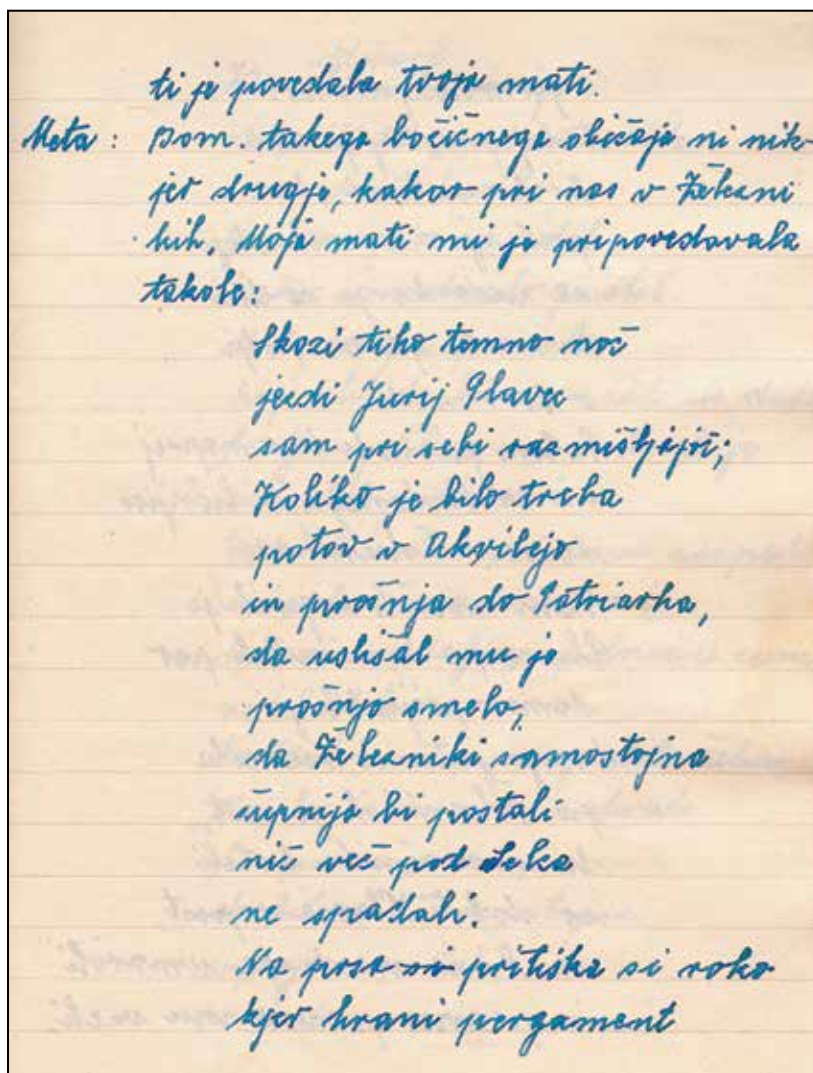 ti je povedala tvoja mati.
Meta: Bom. takega božičnega običaja ni nik-
jer drugje, kakor pri nas v Železni
kih, Moja mati mi je pripovedovala
takole:
Skozi tiho temno noč
jezdi Jurij Plavec
sam pri sebi razmišljajoč;
Koliko je bilo treba
potov v Akvilejo
in prošnja do Patriarha,
da uslišal mu je
prošnjo smelo,
da Železniki samostojna
župnija bi postali
nič več pod Selca
ne spadali.
Na prsa si pritiska si roko
kjer hrani pergament